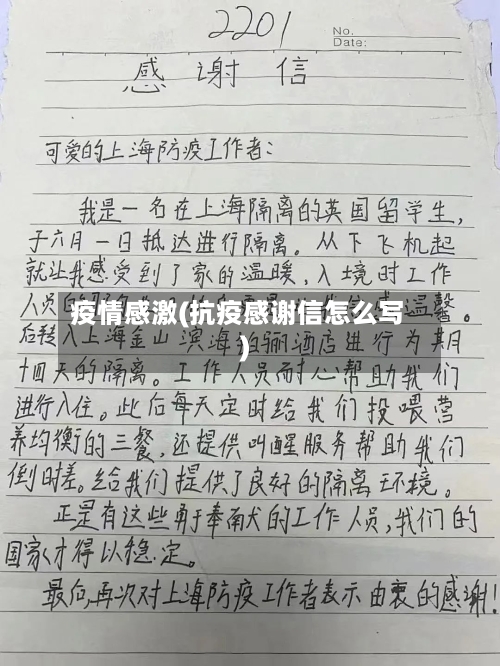 2201
No.
Date:
感 谢 信
可爱的上海防疫工作者:
我是一名在上海隔离的英国留学生,
于六月一日抵达进行隔离。从下飞机起
就让我感受到了家的温暖,入境时工作
人员
温馨。
疫情感激(抗疫感谢信怎么写
)
后转入上海金山滨海铂骊酒店进行为期
十四天的隔离。工作人员耐心帮助我们
进行入住。此后每天定时给我们投喂营
养均衡的三餐,还提供叫醒服务帮助我们
倒时差。给我们提供了良好的隔离环境。
正是有这些勇于奉献的工作人员,我们的
国家才得以稳定。
最后,再次对上海防疫工作者表示由衷的感谢!